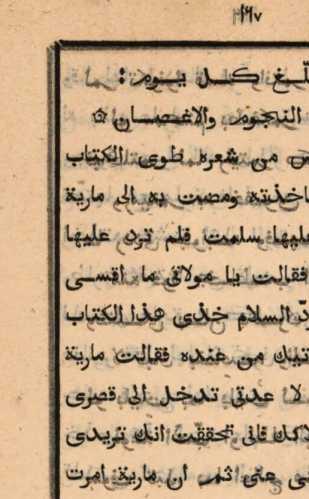 ١٦٧
كل يوم :
النجوم والاغصان ۞
من شعره طوى الكتاب
ومضت به الى مارية
سلمت فلم ترد عليها
فقالت يا مولاتى ما اقسى
السلام خذى هذا الكتاب
من عنده فقالت مارية
لا عدتى تدخل الى قصرى
تحققت انك تريدى
عنى ثم ان مارية امرت